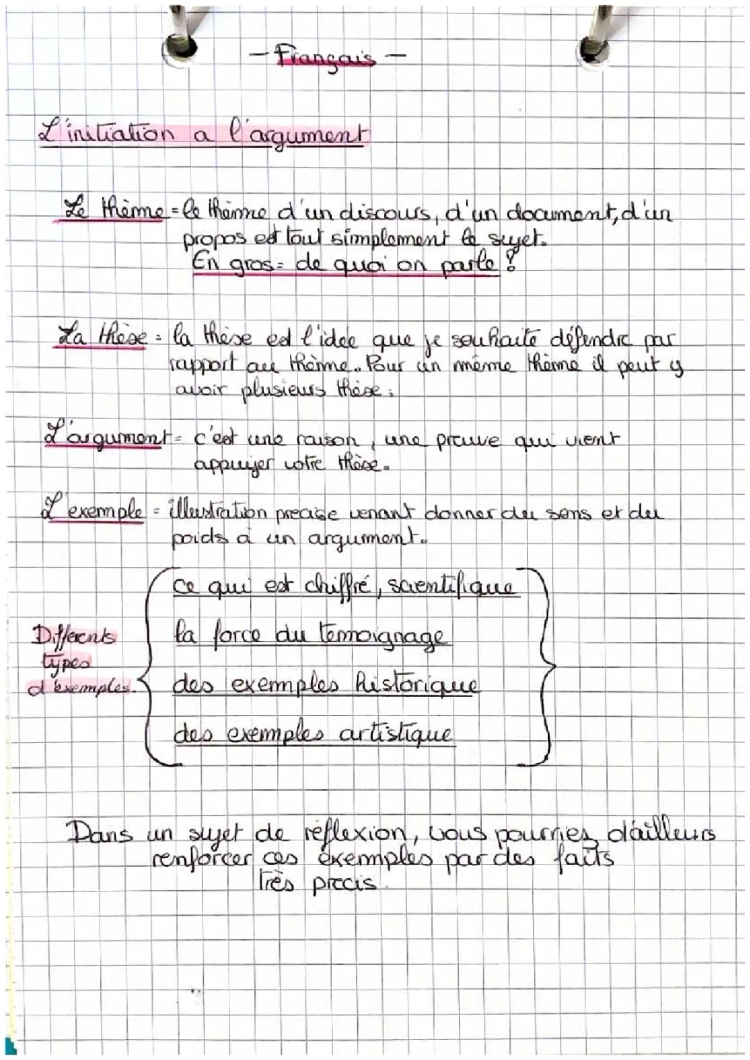 - Français -
L'initiation a l'argument
Le thème = le thème d'un discours, d'un document, d'un
propos est tout simplement le sujet.
En gros = de quoi on parle ?
La thèse = la thèse est l'idée que je souhaite défendre par
rapport au thème. Pour un même thème il peut y
avoir plusieurs thèse.
L'argument = c'est une raison, une preuve qui vient
appuyer votre thèse.
L'exemple = illustration precise venant donner du sens et du
poids à un argument.
ce qui est chiffré, scientifique
Différents
types
d'exemples.
la force du temoignage
des exemples historique
des exemples artistique
Dans un sujet de réflexion, vous pourries d'ailleurs
renforcer ces exemples par des faits
très precis.